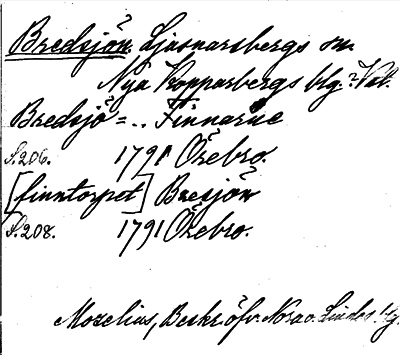 Bredsjön. Ljusnarsbergs sn.
Nya Kopparbergs blg. Vstl.
Bredsjö = .. Finnarne
S.206. 1791 Örebro.
[finntorpet] Bresjön
S.208. 1791 Örebro.
Mozelius, Beskr. öfv. Nora o. Lindes blg.